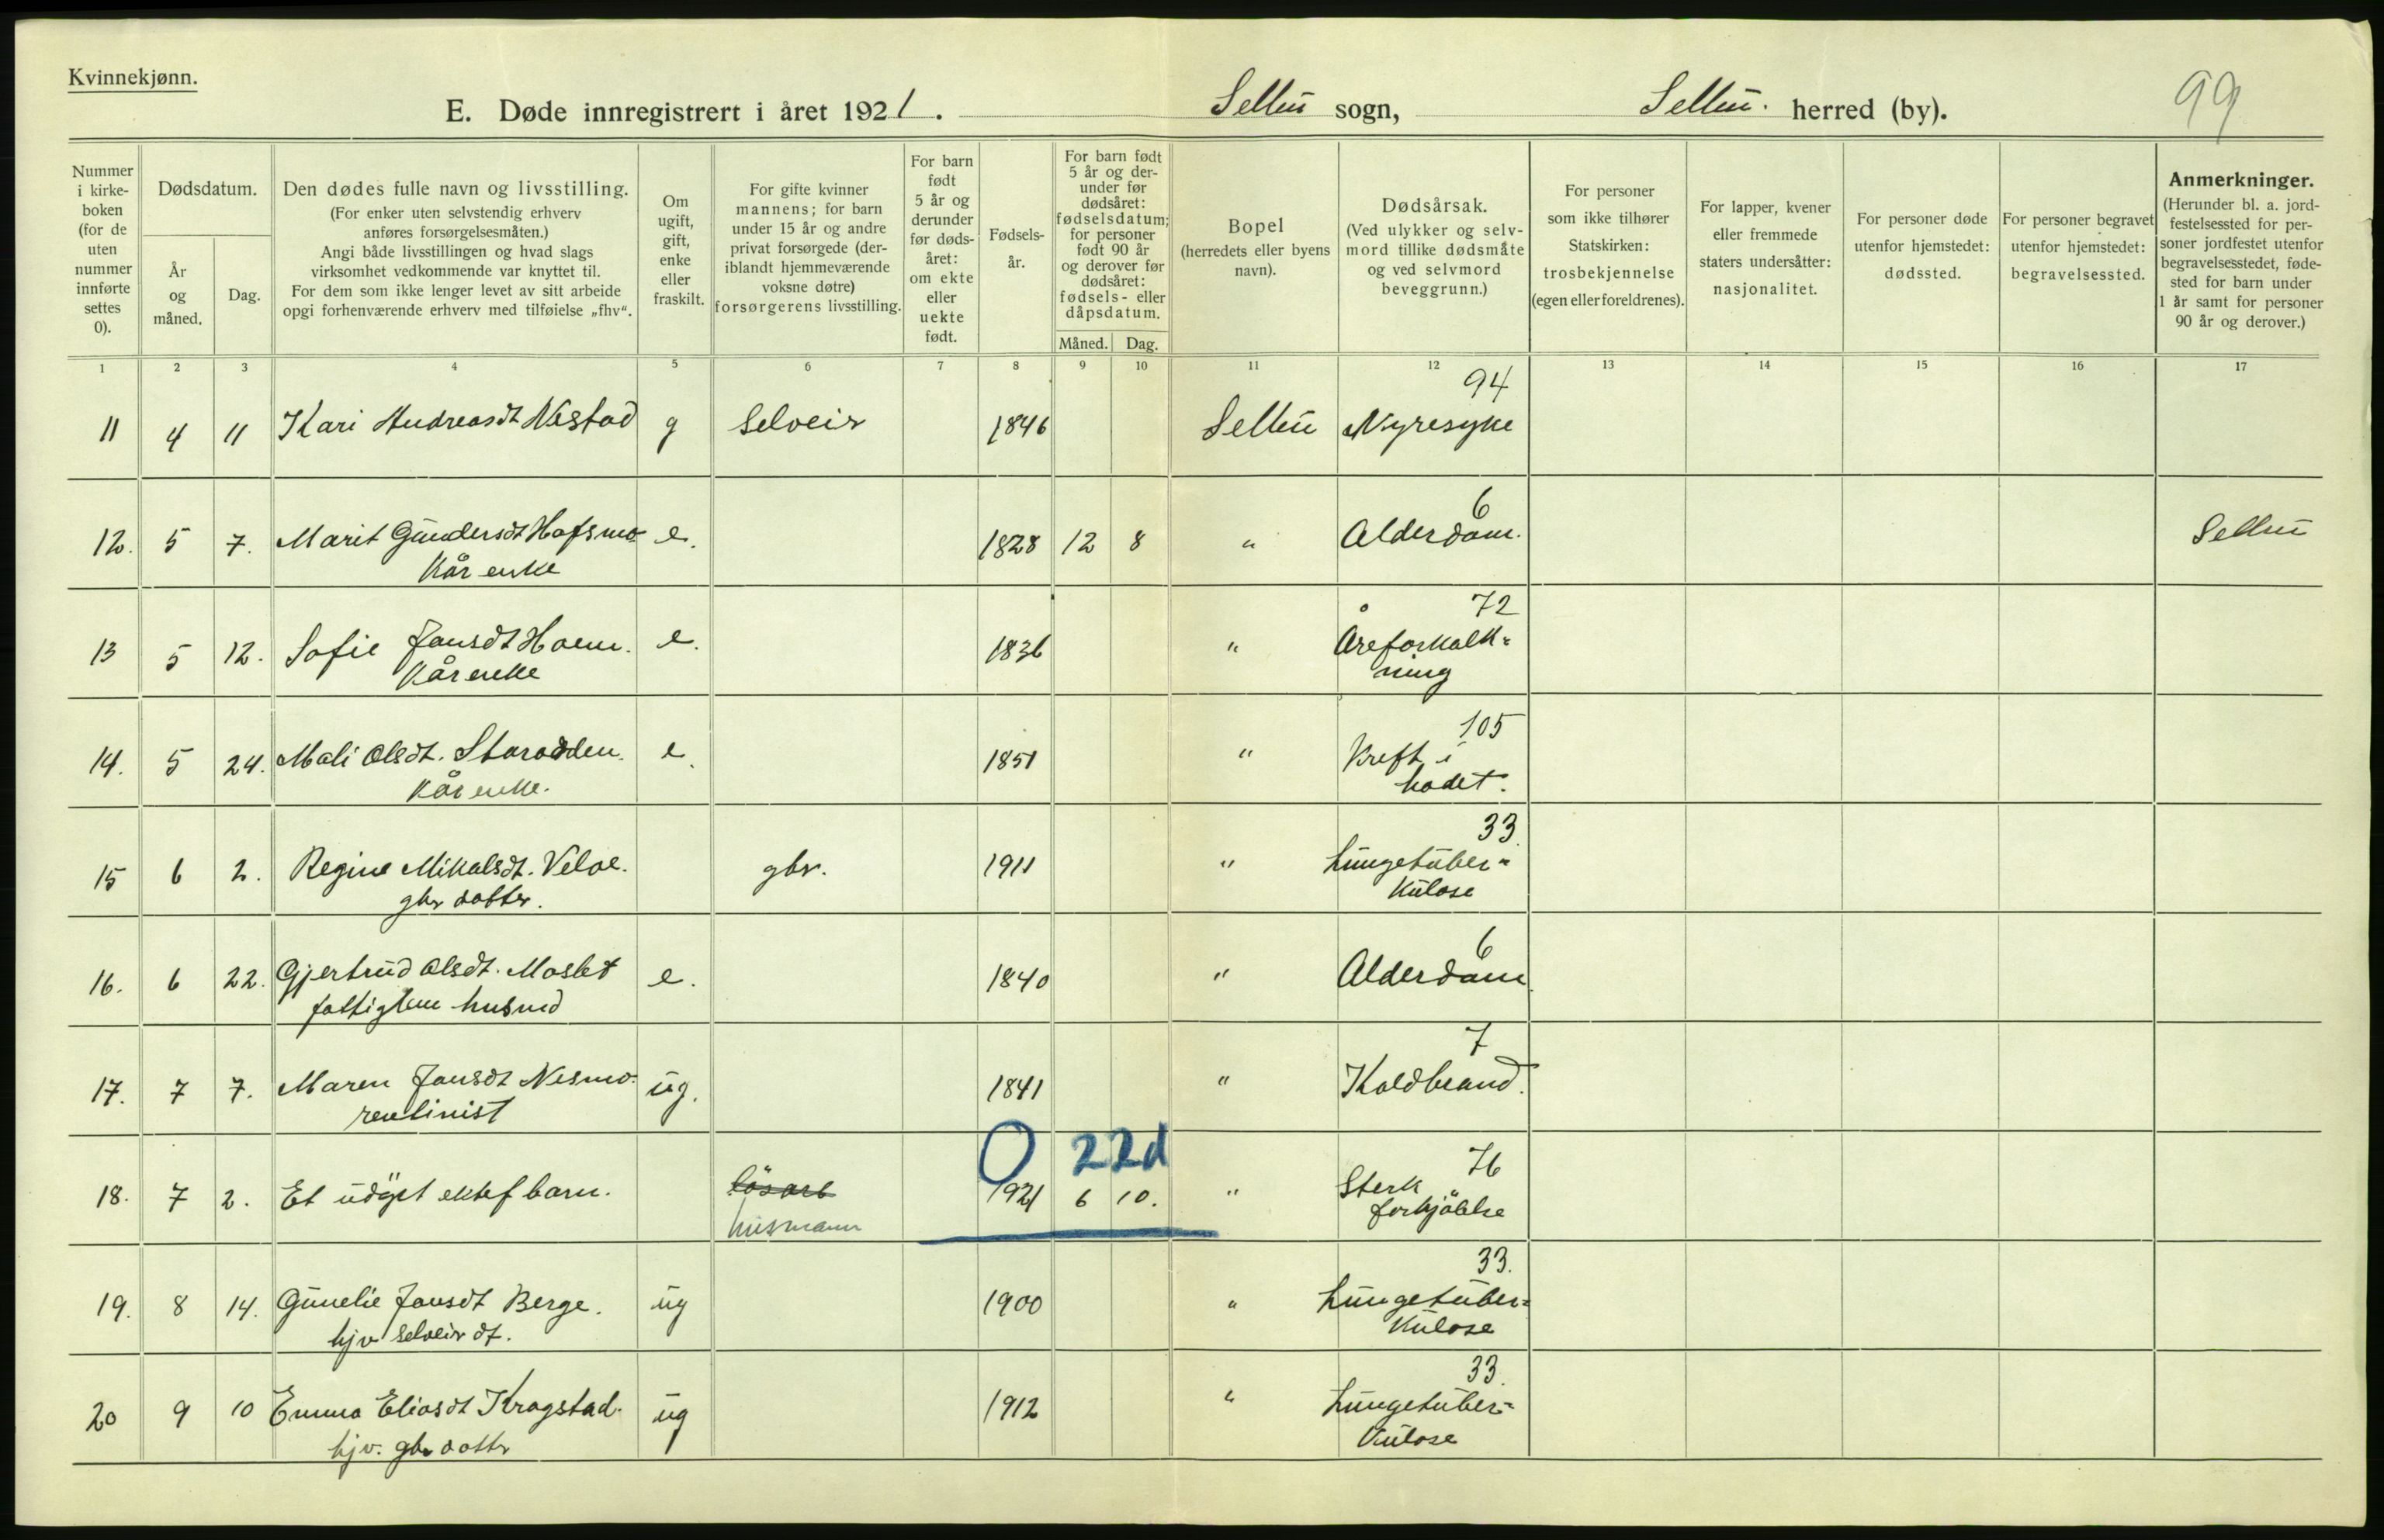 Kvinnekjønn.
E. Døde innregistrert i året 1921. Selbu sogn, Selbu. herred (by). 99
Nummer i kirke-boken (for de uten nummer innførte settes 0).
Dødsdatum.
År og måned.
Dag.
Den dødes fulle navn og livsstilling.
(For enker uten selvstendig erhverv
anføres forsørgelsesmåten.)
Angi både livsstillingen og hvad slags
virksomhet vedkommende var knyttet til.
For dem som ikke lenger levet av sitt arbeide
opgi forhenværende erhverv med tilføielse „fhv“.
Om ugift, gift, enke eller fraskilt.
For gifte kvinner
mannens; for barn
under 15 år og andre
privat forsørgede (der-
iblandt hjemmeværende
voksne døtre)
forsørgerens livsstilling.
For barn født 5 år og derunder før døds-året: om ekte eller uekte født.
Fødsels-år.
For barn født
5 år og der-
under før
dødsåret:
fødselsdatum;
for personer
født 90 år
og derover før
dødsåret:
fødsels- eller
dåpsdatum.
Måned. Dag.
Bopel
(herredets eller byens
navn).
Dødsårsak.
(Ved ulykker og selv-
mord tillike dødsmåte
og ved selvmord
beveggrunn.)
For personer
som ikke tilhører
Statskirken:
trosbekjennelse
(egen eller foreldrenes).
For lapper, kvener
eller fremmede
staters undersåtter:
nasjonalitet.
For personer døde
utenfor hjemstedet:
dødssted.
For personer begravet
utenfor hjemstedet:
begravelsessted.
Anmerkninger.
(Herunder bl. a. jord-
festelsessted for per-
soner jordfestet utenfor
begravelsesstedet, føde-
sted for barn under
1 år samt for personer
90 år og derover.)
1 2 3 4 5 6 7 8 9 10 11 12 13 14 15 16 17
94
11 4 11 Kari Andreasdt Nestad g Selveir 1846 Selbu Nyresyke
6
12. 5 7. Marit Gundersdt Hofsmo e. 1828 12 8 " Alderdom. Selbu
Kår enke
72
13 5 12. Sofie Jonsdt Hoem. e. 1836 " Åreforkalk=
Kår enke ning
105
14. 5 24. Mali Olsdt. Storodden. e. 1851 " Kreft i
Kår enke. hodet.
33
15 6 2. Regine Mikalsdt. Veloe. gbr. 1911 " Lungetuber=
gbr dotter. kulose
6
16. 6 22. Gjertrud Olsdt. Moslet e. 1840 " Alderdom
fattiglem husmd
7
17. 7 7. Maren Jonsdt Nesmo. ug. 1841 " Koldbrand.
rentinist
0 22d 76
18. 7 2. Et udøpt ektef barn. løsarb 1921 6 10. " Sterk
husmann forkjølelse
33.
19. 8 14. Gunelie Jonsdt Berge. ug 1900 " Lungetuber=
hjv selveir dt. kulose
33.
20 9 10 Emma Eliasdt Kragstad. ug 1912 " Lungetuber=
hjv. gbr dottr kulose